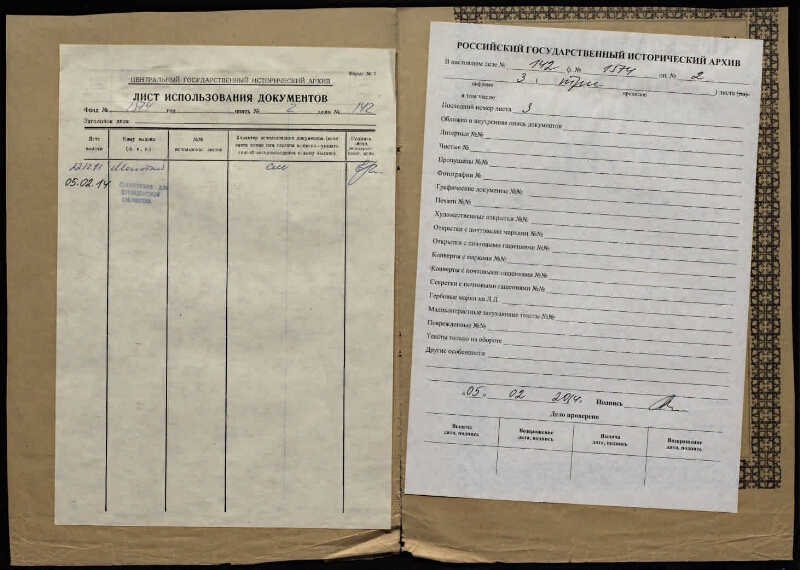 Форма № 7
ЦЕНТРАЛЬНЫЙ ГОСУДАРСТВЕННЫЙ ИСТОРИЧЕСКИЙ АРХИВ
ЛИСТ ИСПОЛЬЗОВАНИЯ ДОКУМЕНТОВ
Фонд № 1574 год опись № 2 дело № 142
Заголовок дела
Дата выдачи
Кому выдано (ф., и., о.)
№№ использован. листов
Характер использования документов
Подпись лица, использов. дело
22.12.81
см
05.02.14
Сканирование для Президентской библиотеки
РОССИЙСКИЙ ГОСУДАРСТВЕННЫЙ ИСТОРИЧЕСКИЙ АРХИВ
В настоящем деле № 142 ф. № 1574 оп. № 2
3 ( три ) листа (ов)
цифрами прописью
в том числе:
Последний номер листа 3
Обложки и внутренняя опись документов
Литерные №№
Чистые №
Пропущены №
Фотографии №
Графические документы №№
Печати №№
Художественные открытки №№
Открытки с почтовыми марками №№
Открытка с почтовыми гашениями №№
Конверты с марками №№
Конверты с почтовыми гашениями №№
Секретки с почтовыми гашениями №№
Гербовые марки на Л.Л.
Малоконтрастные затухающие тексты №№
Поврежденные №№
Тексты только на обороте
Другие особенности
„05„ 02 2014. Подпись
Дело проверено
Выдача дата, подпись
Возвращение дата, подпись
Выдача дата, подпись
Возвращение дата, подпись